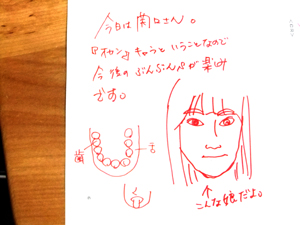 今日は関口さん。
『オカン』キャラということなので
今後のぷんぷんが楽しみ
です。
歯
舌
こんな娘だよ。